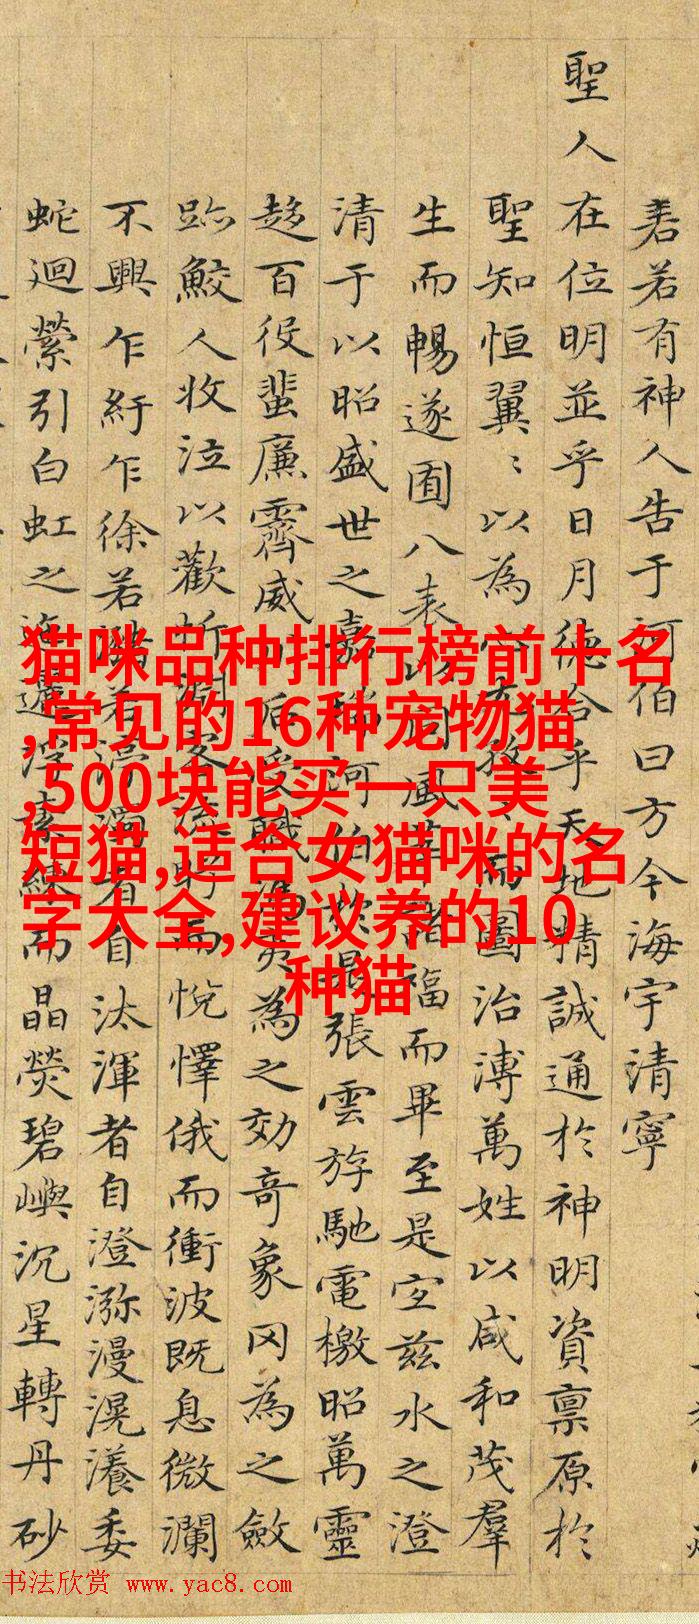 若有神人告于河伯曰方今海宇清寧
聖人在位明並乎日月德合乎天地精誠通於神明資稟原於
聖知恒翼ミ以為孜ミ而圖治溥萬姓以咸和茂羣
生而暢遂囿八表以同風萃諸福而畢至是宜茲水之澄
清于以昭盛世之嘉瑞河伯於是張雲斿馳電檄昭萬靈
趍百役蜚廉霽威川后受職馮夷為之効奇象罔為之斂
跡鮫人收泣以歡忻淵客流眄而悅懌俄而衝波既息微瀾
不興乍紆乍徐若若渟濁者自汰渾者自澄瀰漫滉瀁委
蛇迴縈引白虹之迤邐浮素練而晶熒碧嶼沉星轉丹砂
猫咪品种排行榜前十名
,常见的16种宠物猫
,500块能买一只美
短猫,适合女猫咪的名
字大全,建议养的10
种猫
书法欣赏 www.yac8.com